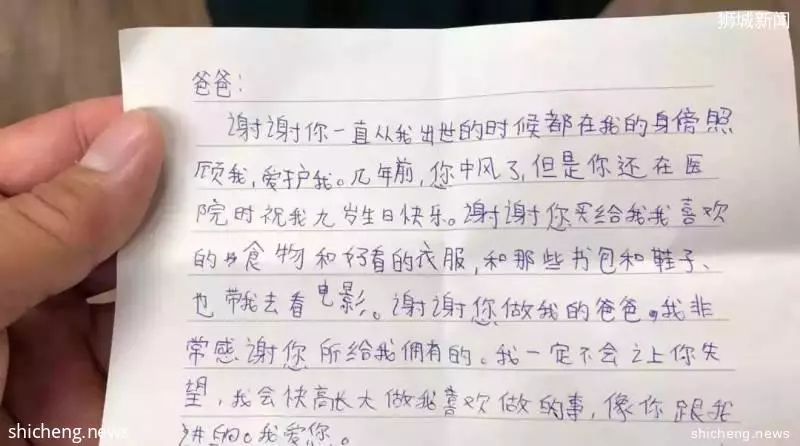 狮城新闻
爸爸：
谢谢你一直从我出世的时候都在我的身傍照
顾我，爱护我。几年前，您中风了，但是你还在医
院时祝我九岁生日快乐。谢谢您买给我我喜欢
的食物和好看的衣服，和那些书包和鞋子、
也带我去看电影。谢谢您做我的爸爸。我非
常感谢您所给我拥有的。我一定不会让你失
望，我会快高长大做我喜欢做的事，像你跟我
讲的。我爱您。
shicheng.news
shicheng.news